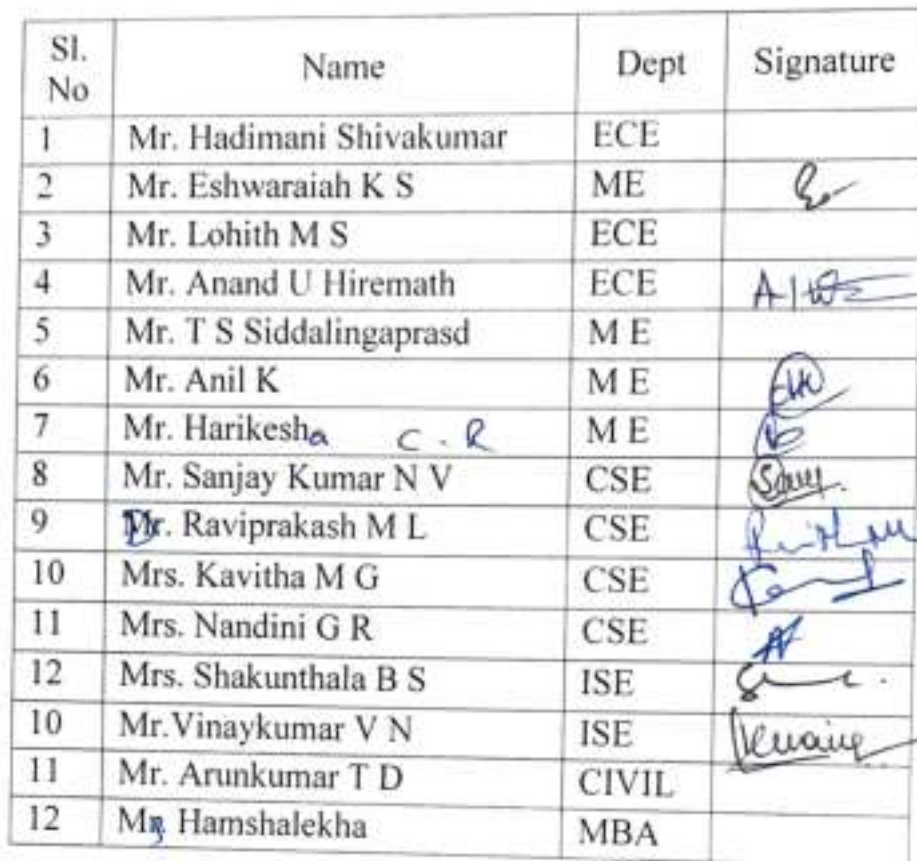 Sl. No Name Dept Signature
1 Mr. Hadimani Shivakumar ECE
2 Mr. Eshwaraiah K S ME
3 Mr. Lohith M S ECE
4 Mr. Anand U Hiremath ECE
5 Mr. T S Siddalingaprasd M E
6 Mr. Anil K M E
7 Mr. Harikesha C. R M E
8 Mr. Sanjay Kumar N V CSE
9 Dr. Raviprakash M L CSE
10 Mrs. Kavitha M G CSE
11 Mrs. Nandini G R CSE
12 Mrs. Shakunthala B S ISE
10 Mr.Vinaykumar V N ISE
11 Mr. Arunkumar T D CIVIL
12 Hamshalekha MBA